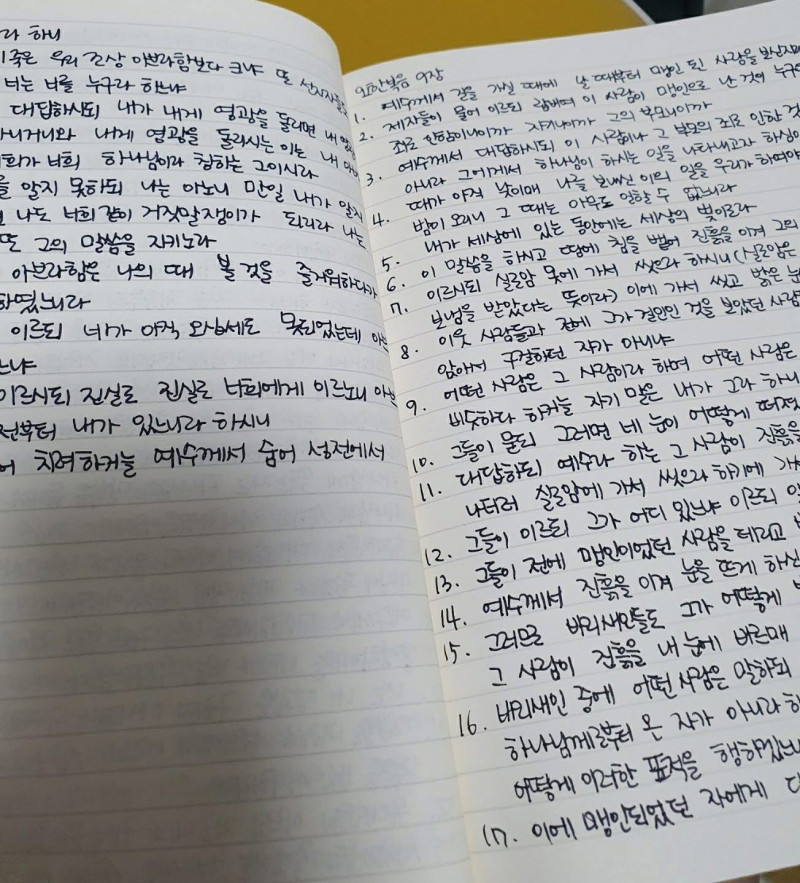 라 하니
죽은 우리 조상 아브라함보다 크냐 또 선지자들도
너는 너를 누구라 하느냐
대답하시되 내가 내게 영광을 돌리면 내 영광
아니거니와 내게 영광을 돌리시는 이는 내 아버
희가 너희 하나님이라 칭하는 그이시라
를 알지 못하되 나는 아노니 만일 내가 알지
나도 너희 같이 거짓말쟁이가 되리라 나는
또 그의 말씀을 지키노라
아브라함은 나의 때 볼 것을 즐거워하다가
하였느니라
이르되 네가 아직 오십세도 못되었는데 아브
느냐
이르시되 진실로 진실로 너희에게 이르노니 아브
전부터 내가 있느니라 하시니
어 치려하거늘 예수께서 숨어 성전에서
요한복음 9장
1. 예수께서 길을 가실 때에 날 때부터 맹인 된 사람을 보신지라
2. 제자들이 물어 이르되 랍비여 이 사람이 맹인으로 난 것이 누구의
죄로 인함이니이까 자기니이까 그의 부모니이까
3. 예수께서 대답하시되 이 사람이나 그 부모의 죄로 인한 것이
아니라 그에게서 하나님이 하시는 일을 나타내고자 하심이
4. 때가 아직 낮이매 나를 보내신 이의 일을 우리가 하여야
밤이 오리니 그 때는 아무도 일할 수 없느니라
5. 내가 세상에 있는 동안에는 세상의 빛이로라
6. 이 말씀을 하시고 땅에 침을 뱉어 진흙을 이겨 그의
7. 이르시되 실로암 못에 가서 씻으라 하시니 (실로암은
보냄을 받았다는 뜻이라) 이에 가서 씻고 밝은 눈
8. 이웃 사람들과 전에 그가 걸인인 것을 보았던 사람
앉아서 구걸하던 자가 아니냐
9. 어떤 사람은 그 사람이라 하며 어떤 사람은
비슷하다 하거늘 자기 말은 내가 그라 하니
10. 그들이 묻되 그러면 네 눈이 어떻게 떠졌
11. 대답하되 예수라 하는 그 사람이 진흙을
나더러 실로암에 가서 씻으라 하기에 가서
12. 그들이 이르되 그가 어디 있느냐 이르되 알
13. 그들이 전에 맹인이었던 사람을 데리고
14. 예수께서 진흙을 이겨 눈을 뜨게 하신
15. 그러므로 바리새인들도 그가 어떻게
그 사람이 진흙을 내 눈에 바르매
16. 바리새인 중에 어떤 사람은 말하되
하나님께로부터 온 자가 아니라 하
어떻게 이러한 표적을 행하겠느냐
17. 이에 맹인되었던 자에게 다